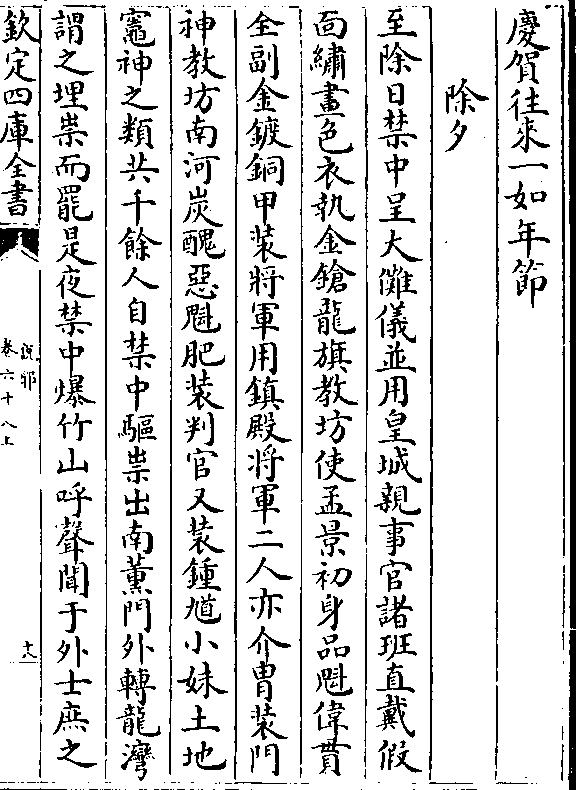 慶賀徃來一如年節
除夕
至除日禁中呈大儺儀並用皇城親事官諸班直戴假
面繡畫色衣執金鎗龍旗教坊使孟景初身品魁偉貫
全副金鍍銅甲装將軍用鎮殿將軍二人亦介胄装門
神教坊南河炭醜惡魁肥装判官又装鍾馗小妹土地
竈神之類共千餘人自禁中驅祟出南薰門外轉龍灣
謂之埋祟而罷是夜禁中爆竹山呼聲聞于外士庶之
欽定四庫全書
說郛
卷六十八上
十八